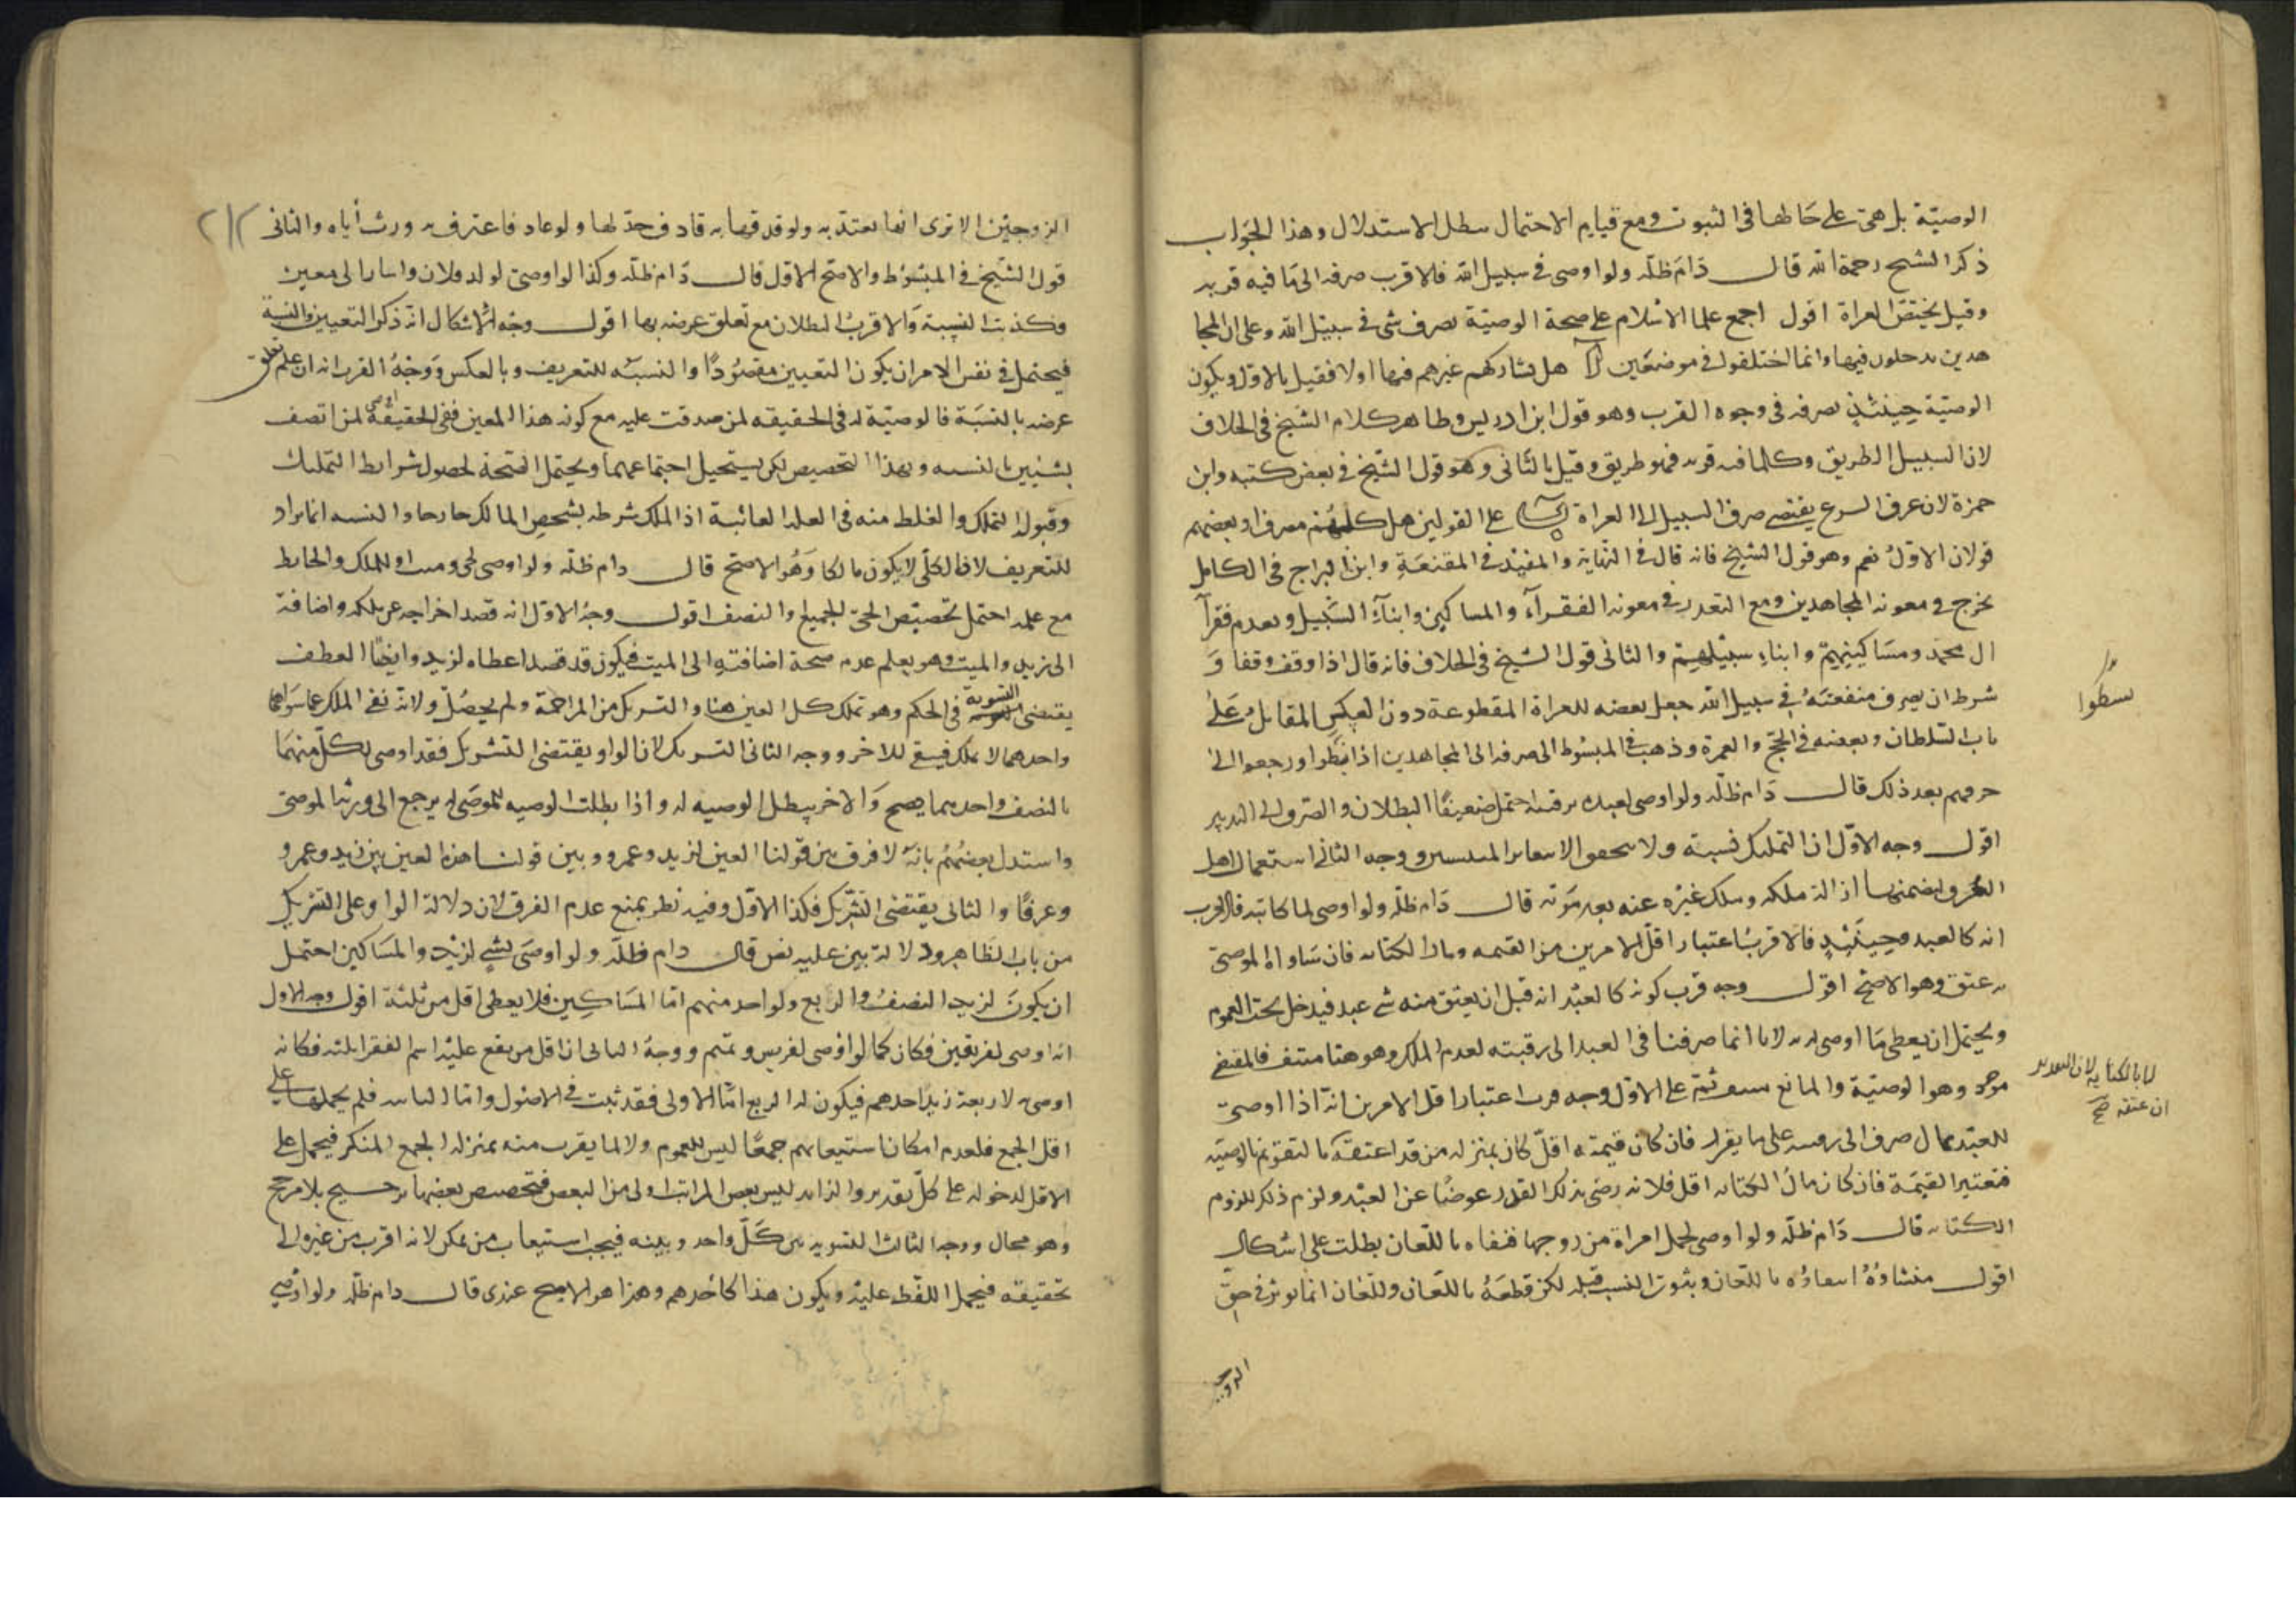 الوصيّة بل هي على حالها في الثبوت ومع قيام الاحتمال يبطل الاستدلال وهذا الجواب
ذكر الشيخ رحمة الله قال دام ظلّه ولو اوصى في سبيل الله فالاقرب صرفه الى ما فيه قربه
وقيل يختص الغزاة اقول اجمع علما الاسلام على صحة الوصيّة بصرف شى في سبيل الله وعلى ان المجا
هدين يدخلون فيها وانما اختلفوا في موضعين آ هل يشاركهم غيرهم فيها اولا فقيل بالاول ويكون
الوصيّة حينئذٍ بصرفه في وجوه القرب وهو قول ابن ادريس وظاهر كلام الشيخ في الخلاف
لان السبيل الطريق وكلما فيه قربه فهو طريق وقيل بالثانى وهو قول الشيخ في بعض كتبه وابن
حمزة لان عرف الشرع يقتضي صرف السبيل الى الغزاة على القولين هل كلهم مصرف او بعضهم
قولان الاول نعم وهو قول الشيخ فانه قال في النهاية والمفيد في المقنعة وابن البراج في الكامل
يخرج في معونه المجاهدين ومع التعذر في معونه الفقرآء والمساكين وابنآء السبيل وبعدم فقرآ
ال محمد ومساكينهم وابناء سبيلهم والثانى قول الشيخ في الخلاف فانه قال اذا وقف وقفا و
شرط ان يصرف منفعته في سبيل الله جعل بعضه للغزاة المقطوعة دون العسكر المقابل على
باب السلطان وبعضه في الحج والعمرة وذهب في المبسوط الى صرفه الى المجاهدين اذا نشطوا ورجعوا الى
حرفهم بعد ذلك قال دام ظلّه ولو اوصى لعبده برقبته احتمل ضعيفًا البطلان والصرف الى التدبير
اقول وجه الاوّل ان التمليك نسبته ولا الا وجه الثانى استعمال اهل
العرف ازالة ملكه وملك غيره عنه بعد موته قال دام ظلّه ولو اوصى لمكاتبه فالاقرب
انه كالعبد وحينئذٍ فالاقرب اعتبار اقل الامرين من القيمه ومال الكتابه فان ساواه الموصى
به عتق وهو الاصح اقول وجه قرب كونه كالعبد انه قبل ان يعتق منه شى عبد فيدخل تحت العموم
ويحتمل ان يعطى ما اوصى له به لانا انما صرفنا في العبد الى رقبته لعدم الملك وهو هنا منتف فالمقتضي
موجود وهو الوصيّة والمانع ثم على الاول وجه قرب اعتبار اقل الامرين انه اذا اوصى
للعبد بمال صرف الى على ما يقرر فان كان قيمته اقلّ كان بمنزله من قد اعتقه بالتقويم بالوصيّه
فتعتبر القيمة فان كان مال الكتابه اقل فلانه رضى بذلك القدر عوضًا عن العبد ولزم ذلك للزوم
الكتابه قال دام ظلّه ولو اوصى لحمل امراة من زوجها فنفاه باللعان بطلت على اشكال
اقول منشاؤه انتفاؤه باللعان وثبوت النسب قبله لكن قطعه باللعان واللعان انما يوثر في حق
نشطوا
لنا بالكتابه لان
ان عتقه صح
الزوجين
٢١٢
الزوجين الا ترى انها تعتد به ولو قذفها به قاذف حدّ لها ولو عاد فاعترف به ورث أباه والثانى
قول الشيخ في المبسوط والاصح الاول قال دام ظلّه وكذا لو اوصى لولد فلان واشار الى معين
فكذبت النسبة والاقرب البطلان مع تعلق غرضه بها اقول وجه الاشكال انه ذكر التعيين والنسبة
فيحتمل في نفس الامر ان يكون التعيين مقصودًا والنسبه للتعريف وبالعكس ووجه القرب انه ان علم تعلق
غرضه بالنسبة فالوصيّة له في الحقيقه لمن صدقت عليه مع كونه هذا المعين ففي الحقيقة اوصى لمن اتصف
بشيئين بالنسبه وبهذا التخصيص لكن يستحيل اجتماعهما ويحتمل الصحة لحصول شرايط التمليك
وقبول التملك والغلط منه في العله الغائية اذ الملك شرطه بشخص المالك خارجا والنسبه انما يراد
للتعريف لان الكلّي لا يكون مالكا وهو الاصح قال دام ظلّه ولو اوصى لحى وميت او للملك والحايط
مع علمه احتمل تخصيص الحىّ بالجميع والنصف اقول وجه الاول انه قصد اخراجه عن ملكه واضافة
الى زيد والميت وهو يعلم عدم صحة اضافته الى الميت فيكون قد قصد اعطاه لزيد وايضًا العطف
يقتضى التسوية في الحكم وهو تملك كل العين هنا والتشريك من المزاحمة ولم يحصل ولانه نفى الملك عما سواهما
واحدهما لا يملك فيبقى للاخر ووجه الثانى التشريك لان الواو يقتضى التشريك فقد اوصى لكل منهما
بالنصف واحدهما يصح والاخر يبطل الوصيه له واذا بطلت الوصيه للموصى له يرجع الى ورثه الموصى
واستدل بعضهم بانه لا فرق بين قولنا العين لزيد وعمرو وبين قولنا هذه العين بين زيد وعمرو
وعرفًا والثانى يقتضى التشريك فكذا الاول وفيه نظر بمنع عدم الفرق لان دلالة الواو على التشريك
من باب الظاهر ودلالة بين عليه نص قال دام ظلّه ولو اوصى بشى لزيد والمساكين احتمل
ان يكون لزيد النصف والربع ولواحد منهم اما المساكين فلا يعطى اقل من ثلثة اقول وجه الاول
انه اوصى لفريقين فكان كما لو اوصى لقريش وتميم ووجه الثانى ان اقل من يقع عليه اسم الفقرا ثلثه فكانه
اوصى لاربعة زيد احدهم فيكون له الربع امّا الاولى فقد ثبت في الاصول واما الثانيه فلم يحملها على
اقل الجمع فلعدم امكان استيعابهم جمعًا ليس للعموم ولا لما يقرب منه بمنزله الجمع المنكر فيحمل على
الاقل لدخوله على كلّ تقدير والزايد ليس بعض المراتب اولى من البعض فتخصيص بعضها ترجيح بلا مرجح
وهو محال ووجه الثالث التسويه بين كلّ واحد وبينه فيجب استيعاب من يمكن لانه اقرب من غيره الى
تحقيقه فيحمل اللفظ عليه ويكون هذا كاحدهم وهذا هو الاصح عندى قال دام ظلّه ولو اوصي